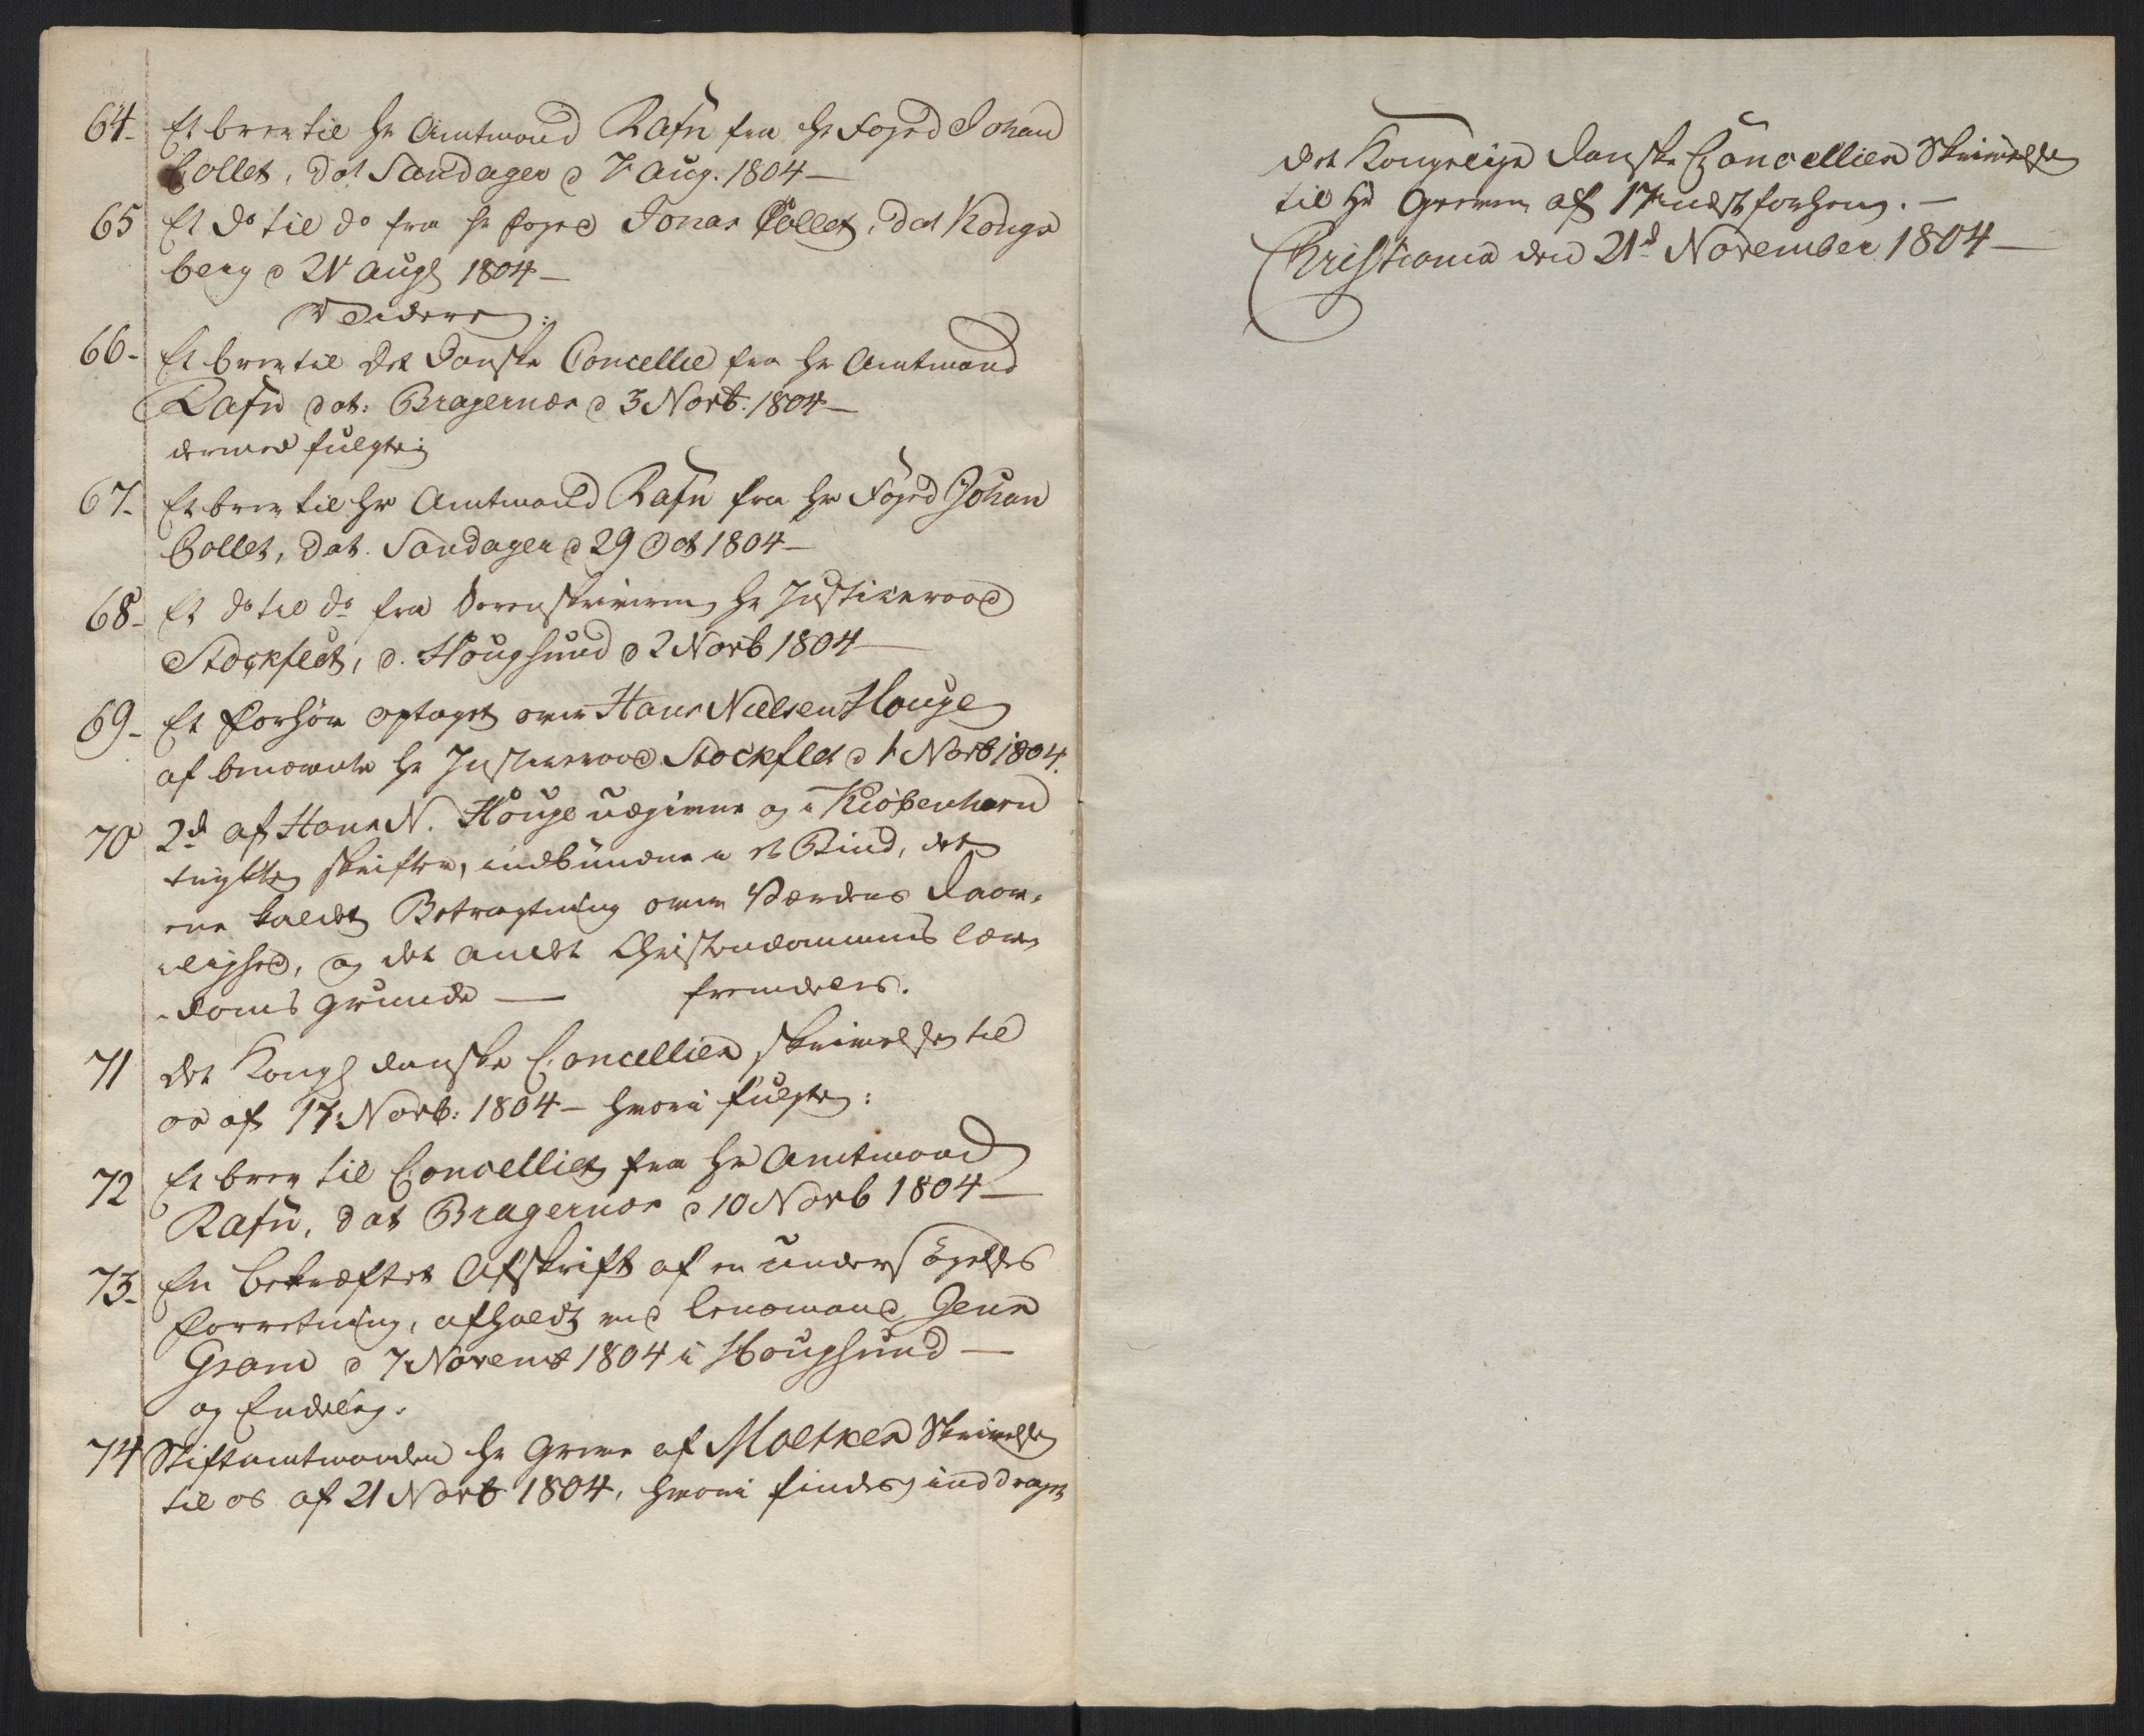 64. Et brev til Hr Amtmand Rafn fra Hr Foged Johan
Collet, dat Sandager d 7 Aug. 1804 —
65 Et do til do fra Hr Foged Jonas Collet, dat Kongs
berg d 21 Augs 1804 —
Videre:
66- Et brev til det Danske Cancellie fra Hr Amtmand
Rafn dat: Bragernæs d 3 Novb. 1804 —
dermed fulgte:
67- Et brev til Hr Amtmand Rafn fra Hr Foged Johan
Collet, dat. Sandager d 29 Oct 1804 —
68- Et do til do fra Sorenskriveren Hr Justiceraad
Stockflet, d. Hougsund d 2 Novb 1804 —
69- Et Forhør optaget over Hans Nielsen Houge
af bemeldte Hr Justiceraad Stockflet d 1 Novb 1804.
70 2de af Hans N. Houge udgivne og i Kiøbenhavn
trykte skrifter, indbundne i et Bind, det
ene kaldet Betragtning over Verdens Daar-
-lighed, og det andet Christendommens lær-
-doms grunde — fremdeles.
71 det Kongl danske Cancellies skrivelse til
os af 17 Novb: 1804 — hvori fulgte:
72 Et brev til Cancelliet fra Hr Amtmand
Rafn, dat Bragernæs d 10 Novb 1804 —
73- En bekræftet Afskrift af en undersøgelses
forretning, afholdt ved lensmand Jens
Gram d 7 Novemb 1804 i Hougsund —
og Endelig.
74 Stiftamtmanden Hr Greve af Moltkes Skrivelse
til os af 21 Novb 1804, hvori findes inddraget
det Kongelige danske Cancellies Skrivelse
til Hr Greven af 17 næstforhen. —
Christiania den 21d November 1804 —